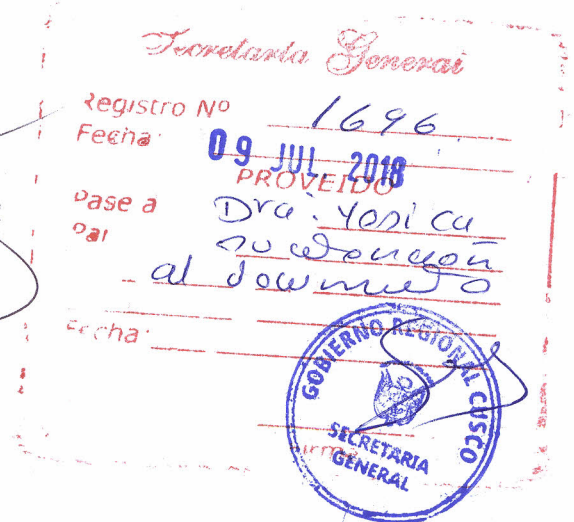 Secretaría General
Registro Nº 1696
Fecha:
09 JUL. 2018
PROVEIDO
Pase a Dra. Yosi ca
Par su atención
al documento
Fecha:
Firma
GOBIERNO REGIONAL CUSCO
SECRETARIA
GENERAL